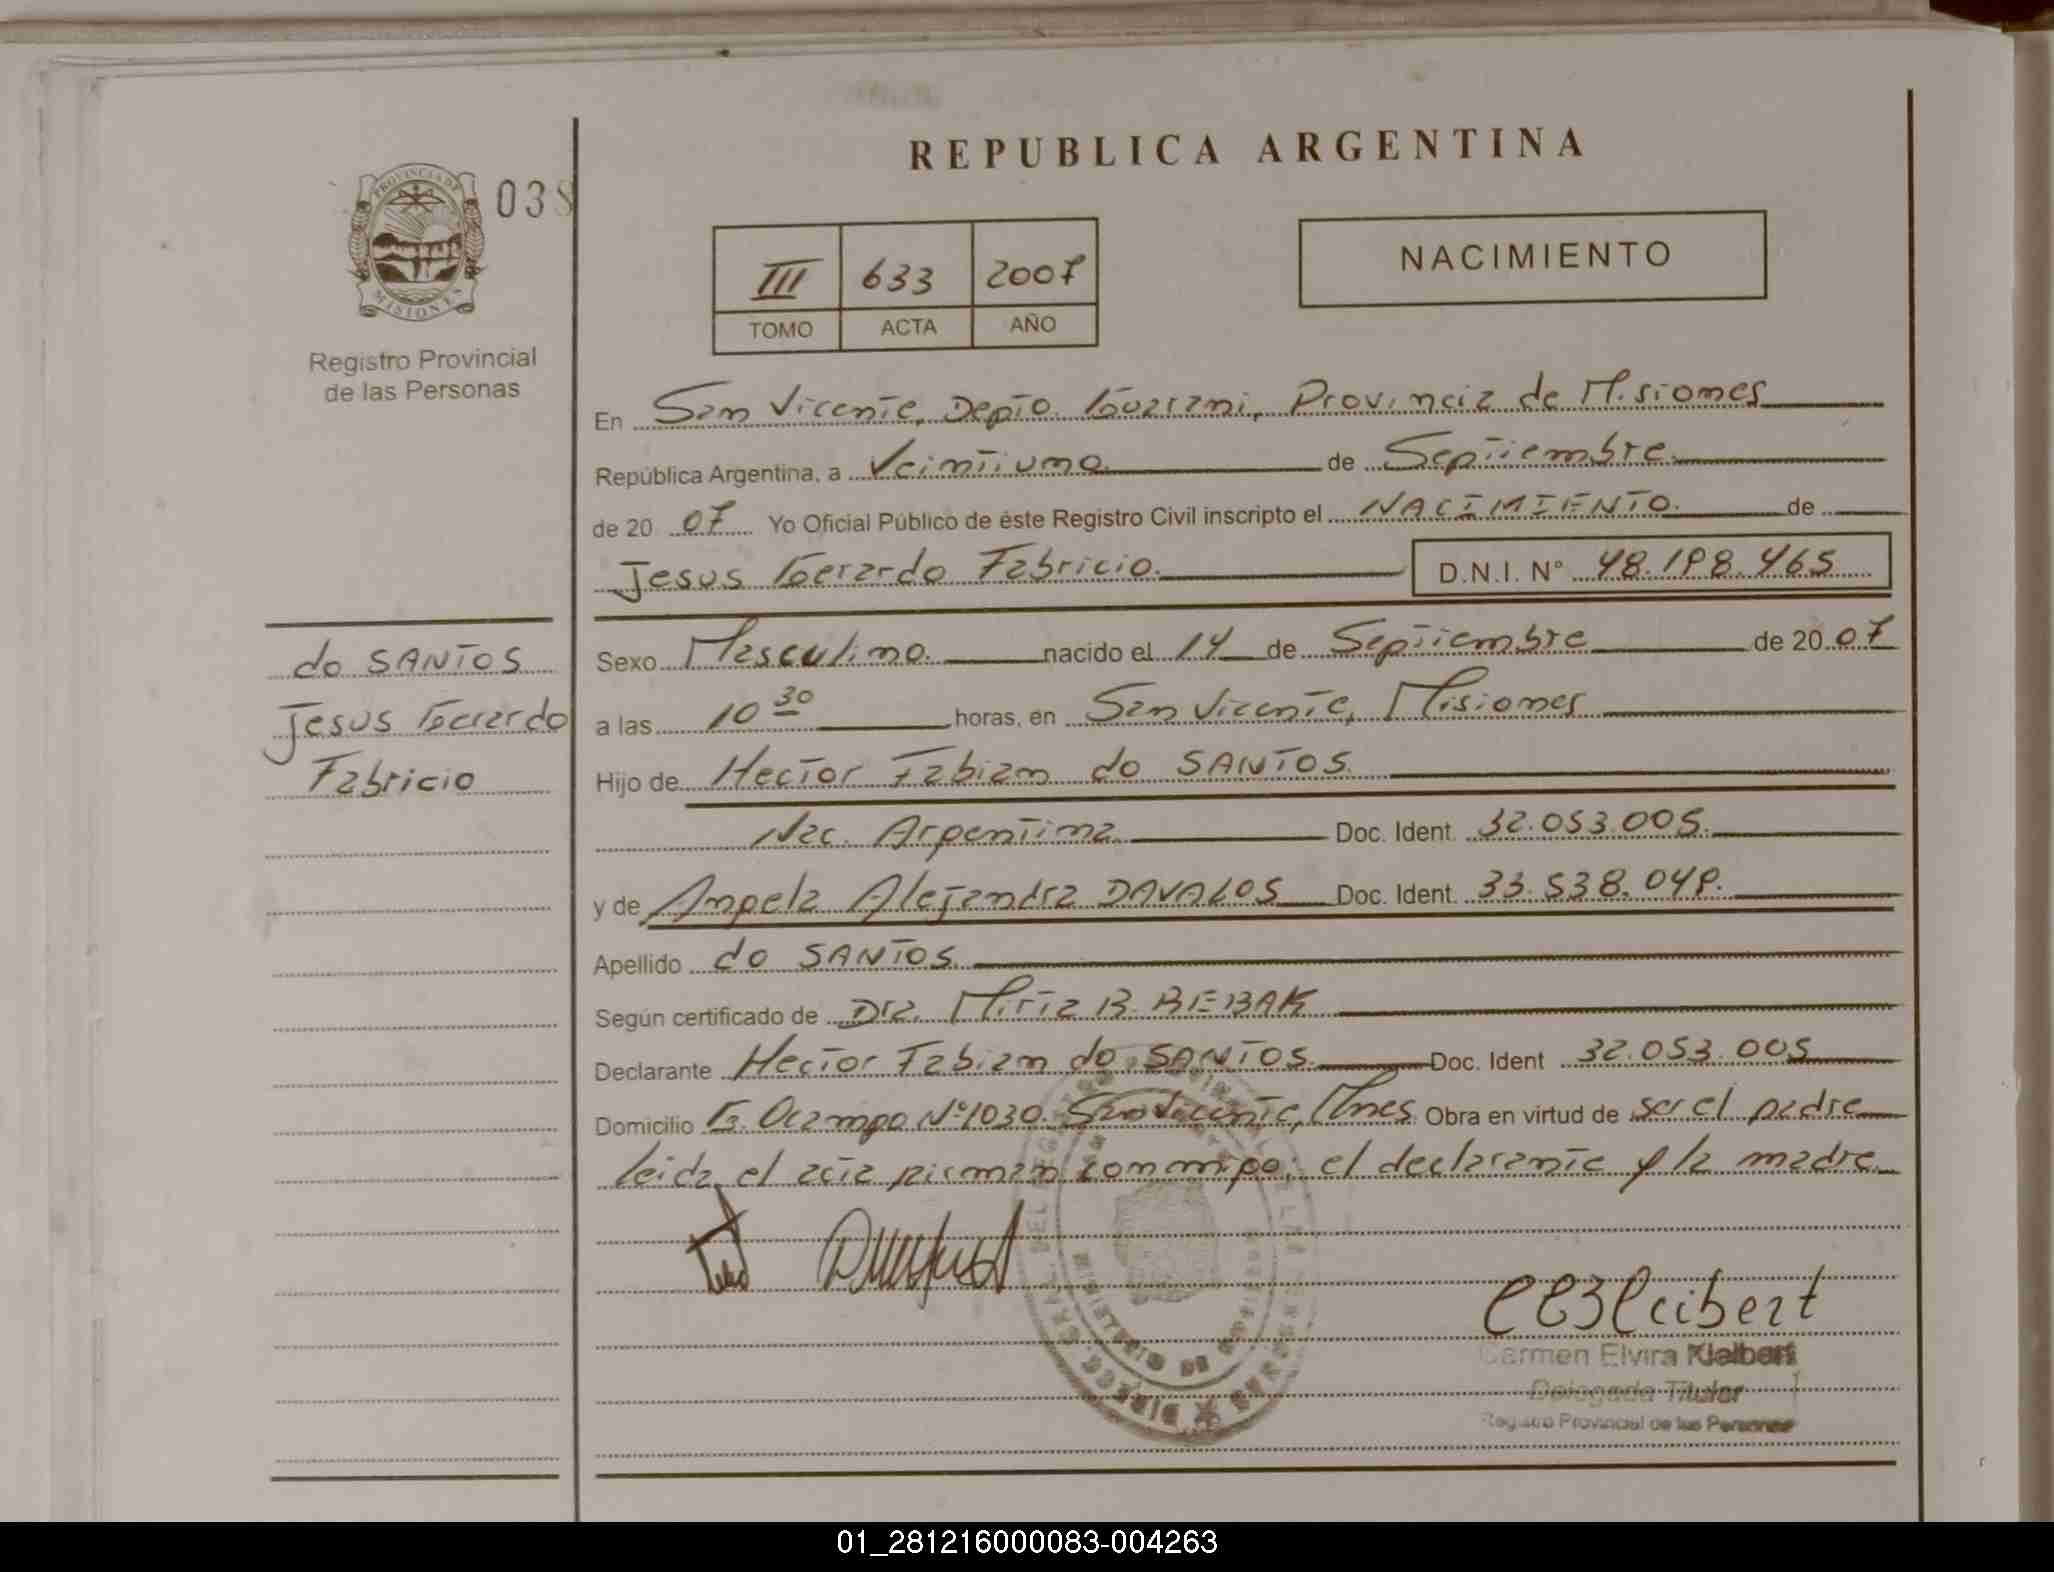 REPUBLICA ARGENTINA
PROVINCIA DE MISIONES
038
Registro Provincial
de las Personas
III 633 2007
TOMO ACTA AÑO
NACIMIENTO
En San Vicente, Depto Guarani, Provincia de Misiones
República Argentina, a Veintiuno de Septiembre
de 20 07 Yo Oficial Público de éste Registro Civil inscripto el NACIMIENTO de
Jesus Gerardo Fabricio. D.N.I. N° 48.198.465
do SANTOS
Jesus Gerardo
Fabricio
Sexo Masculino. nacido el 14 de Septiembre de 20 07
a las 10 30 horas, en San Vicente, Misiones
Hijo de Hector Fabian do SANTOS.
Nac. Argentina Doc. Ident. 32.053.005.
y de Angela Alejandra DAVALOS Doc. Ident. 33.538.049.
Apellido do SANTOS.
Según certificado de Dra. Mirta B. BEBAK
Declarante Hector Fabian do SANTOS. Doc. Ident 32.053.005
Domicilio G. Ocampo Nº1030. San Vicente, Mnes. Obra en virtud de ser el padre
leida el acta firman conmigo; el declarante y la madre
Carmen Elvira Kleibert
Delegada Titular
Registro Provincial de las Personas
01_281216000083-004263